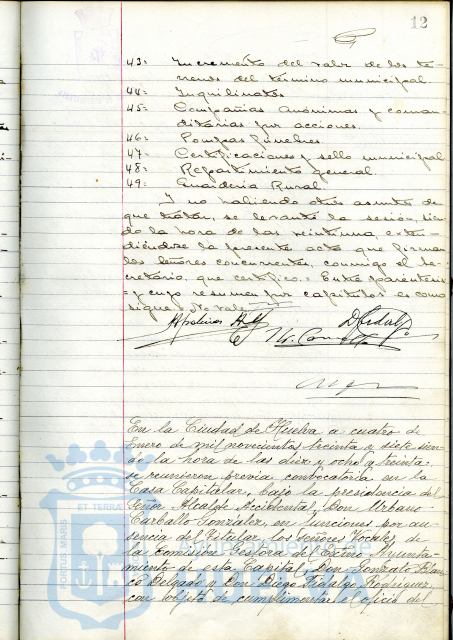 12
43: Incremento del valor de los te-
rrenos del término municipal.
44: Inquilinatos
45: Compañías Anónimas y coman-
ditarias por acciones.
46: Pompas fúnebres.
47: Certificaciones y sello municipal
48: Repartimiento general
49: Guardería Rural.
Y no habiendo otros asuntos de
que tratar, se levanta la sesión, sien-
do la hora de las veintiuna, exten-
diéndose la presente acta que firman
los señores concurrentes, conmigo el Se-
cretario, que certifico. Entre parentesis
= y cuyo resumen por capitulos es como
sigue = No vale
En la Ciudad de Huelva a cuatro de
Enero de mil novecientos treinta y siete sien-
do la hora de las diez y ocho y treinta,
se reunieron previa convocatoria en la
Casa Capitular, bajo la presidencia del
Señor Alcalde Accidental, Don Urbano
Carballo Gonzalez, en funciones por au-
sencia del Titular, los Señores Vocales, de
la Comisión Gestora del Excmo. Ayunta-
miento de esta Capital, Don Gonzalo Blan-
co Delgado y Don Diego Fidalgo Rodriguez,
con objeto de cumplimentar el oficio del
PORTUS MARIS ET TERRAE